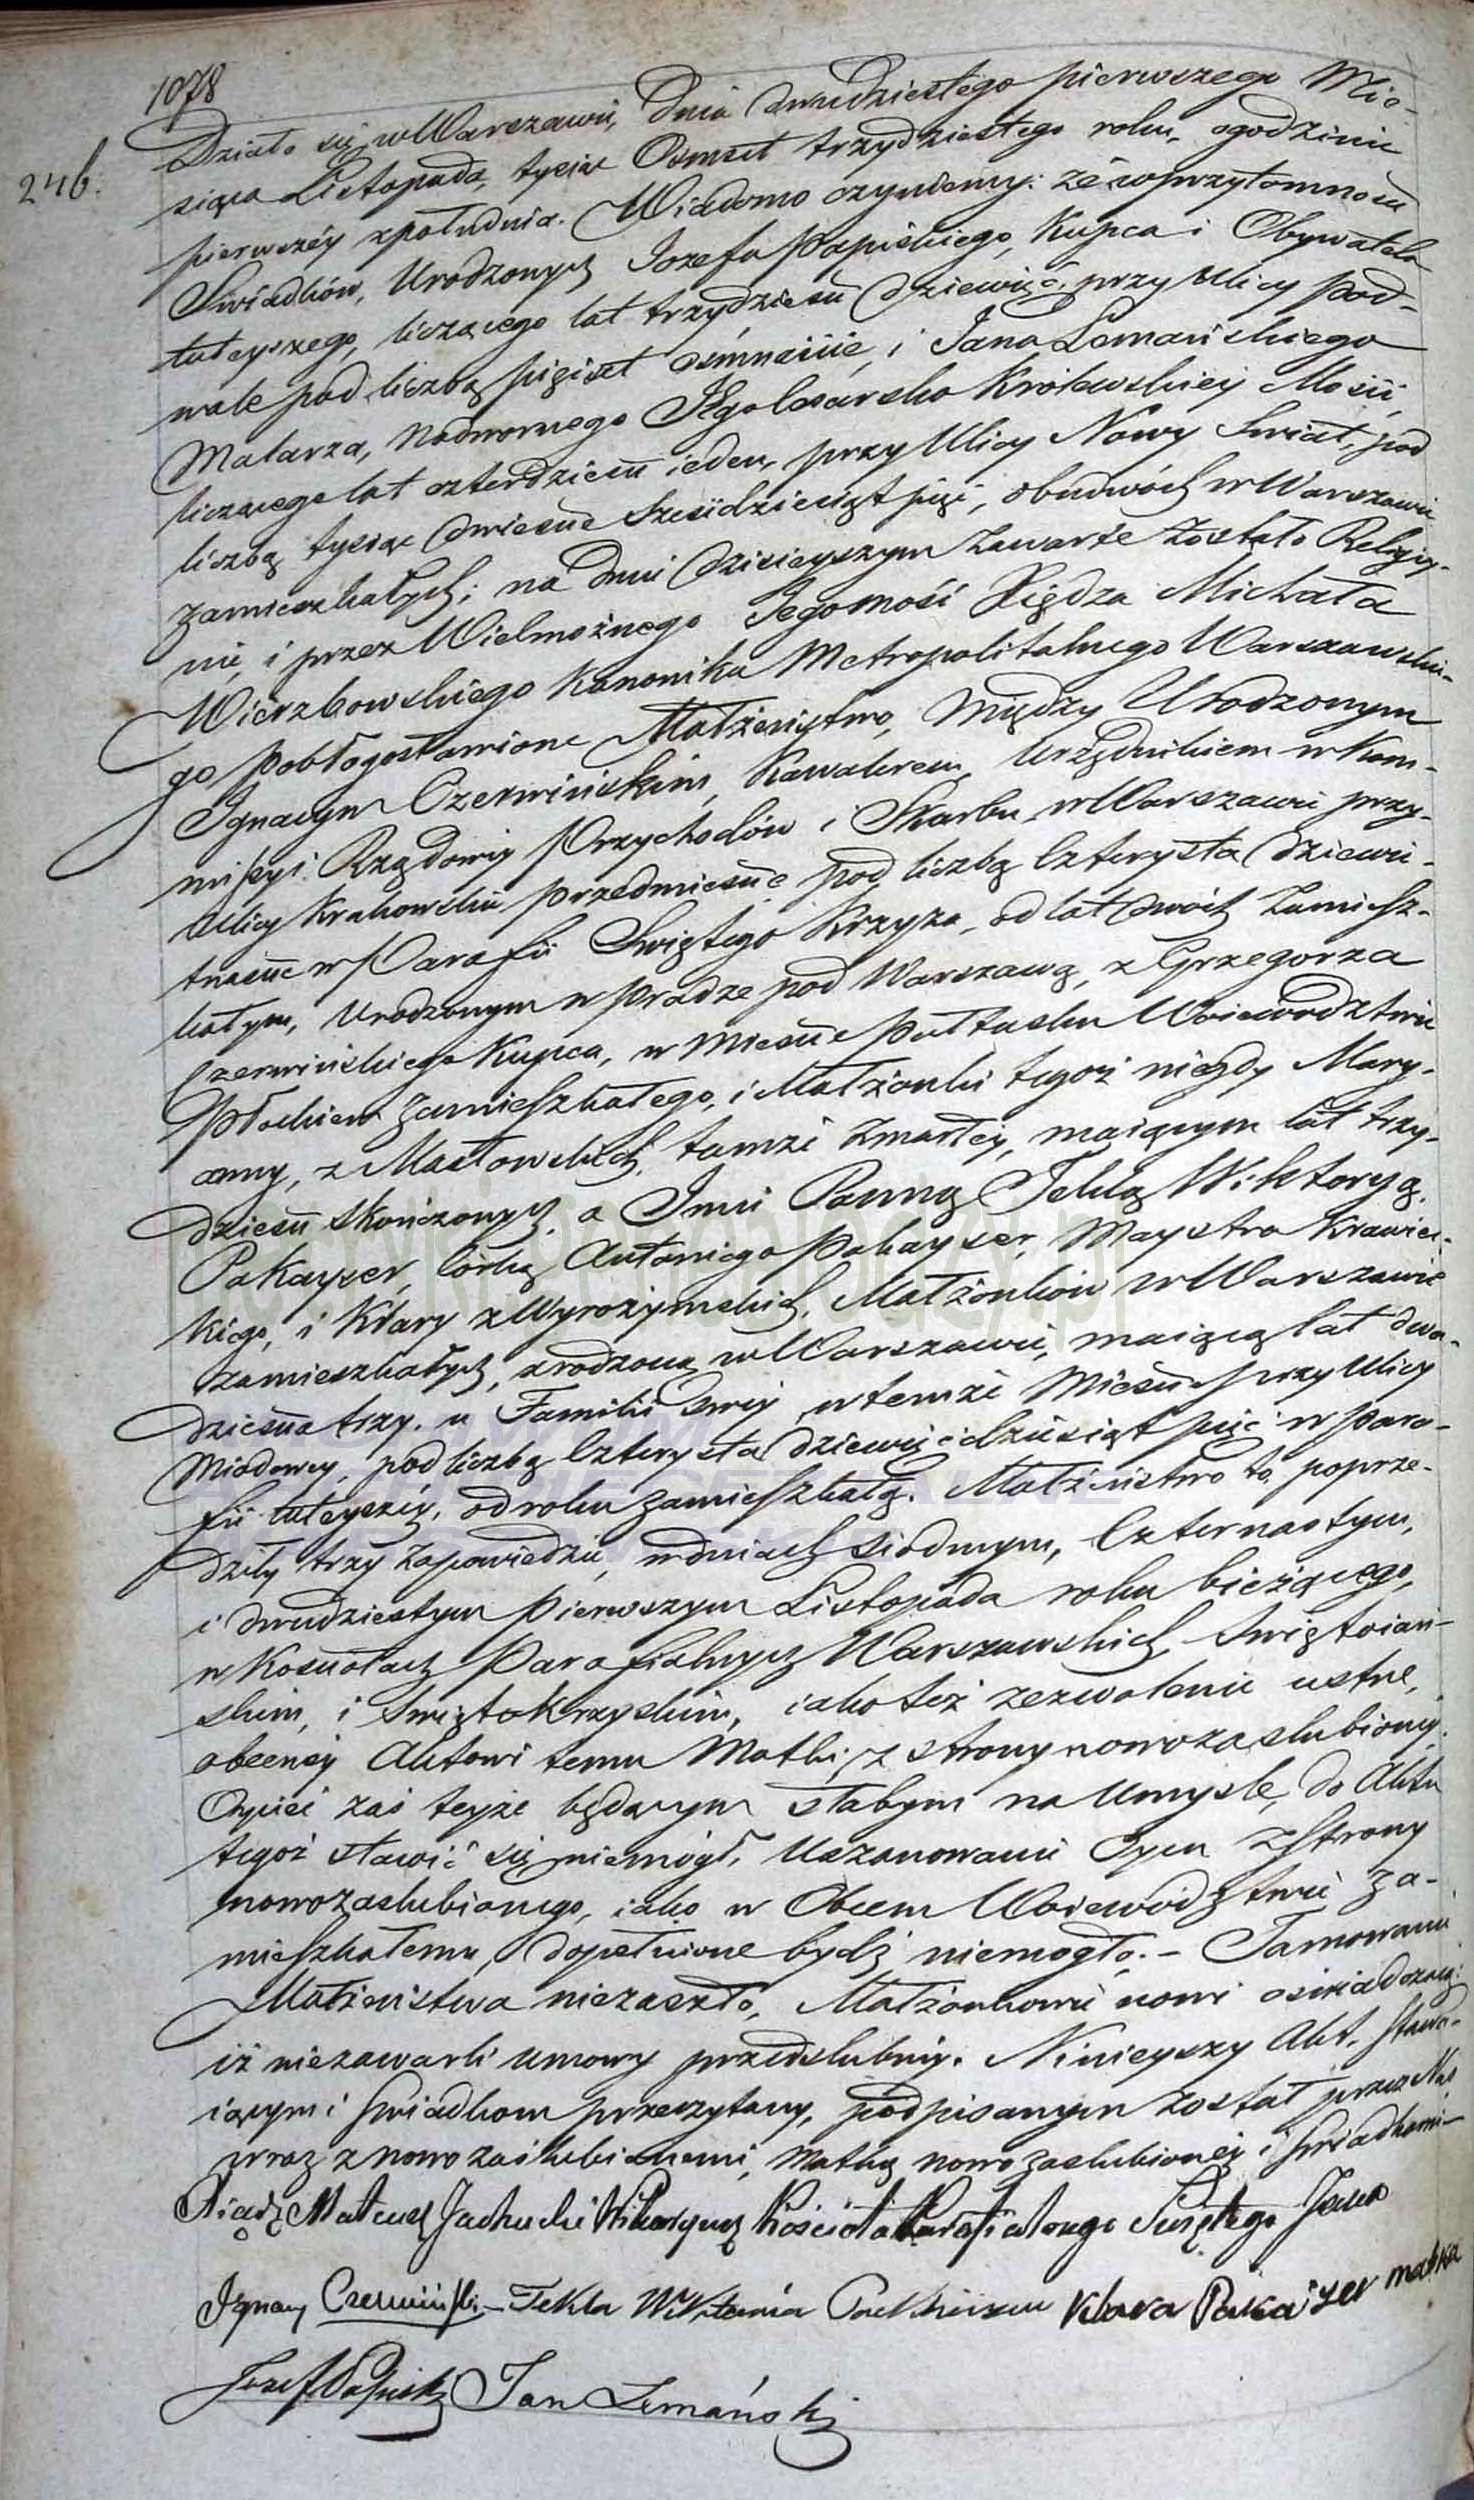 1078
246.
Działo się w Warszawie, Dnia dwudziestego pierwszego Mie-
siąca Listopada, tysiąc Osmset trzydziestego roku, o godzinie
pierwszéy z południa. Wiadomo czyniemy: że w przytomności
Świadków, Urodzonych Jozefa Papińskiego, Kupca i Obywatela
tuteyszego, liczącego lat trzydzieści dziewięć, przy Ulicy Pod-
wale pod liczbą pięćset ośmnaście, i Jana Lemańskiego
Malarza, Nadwornego Jego Cesarsko Królewskiey Mości,
liczącego lat czterdzieści ieden, przy Ulicy Nowy Swiat, pod
liczbą tysiąc dwieście sześćdziesiąt pięć, obudwóch w Warszawie
zamieszkałych; na dniu dzisieyszym zawarte zostało Religiy-
nie, i przez Wielmożnego Jegomość Xiędza Michała
Wierzbowskiego Kanonika Metropolitalnego Warszawskie-
go pobłogosławione Małżeństwo, między Urodzonym
Ignacym Czerwińskim, Kawalerem, Urzędnikiem w Kom-
missyi Rządowey Przychodów i Skarbu, w Warszawie przy
Ulicy Krakowskie Przedmieście pod liczbą Czterysta dziewię-
tnaście w Parafii Swiętego Krzyża, od lat dwóch zamiesz-
kałym, Urodzonym w Pradze pod Warszawą, z Grzegorza
Czerwińskiego Kupca, w Mieście Pułtusku Woiewodztwie
Płockiem zamieszkałego, i Małżonki tegoż niegdy Mary-
anny, z Masłowskich, tamże zmarłéy, maiącym lat trzy-
dzieści skończonych, a Imci Panną Teklą Wiktoryą
Pakayzer, Córką Antoniego Pakayser, Maystra Krawiec-
kiego, i Klary z Wyrożymskich, Małżonków w Warszawie
zamieszkałych, urodzoną w Warszawie, maiącą lat dwa-
dzieścia trzy, u Familii swéy w temże Mieście przy Ulicy
Miodowey, pod liczbą Czterysta dziewięćdziesiąt pięć w Para-
fii tuteyszéy, od roku zamieszkałą. Małżeństwo to, poprze-
dziły trzy zapowiedzie, w dniach siódmym, Czternastym,
i dwudziestym pierwszym Listopada roku bieżącego,
w Kościołach Parafialnych Warszawskich Swiętoiań-
skim, i Swiętokrzyskim, iako też zezwolenie ustne,
obecnéy Aktowi temu Matki, z strony nowozaslubionéy.
Oyciec zaś teyże będącym słabym na Umysle, do Aktu
tegoż stawić się niemógł, Uszanowanie Oycu z strony
nowozaslubionego, iako w Obcem Woiewództwie za-
mieszkałemu, dopełnione bydź niemogło. – Tamowanie
Małżeństwa niezaszło, Małżonkowie nowi oświadczaią:
iż niezawarli umowy przedslubnéy. Ninieyszy Akt, stawa-
iącym i świadkom przeczytany, podpisanym został przez Nas
wraz z nowozaślubionemi, Matką nowozaslubionéy i świadkami –
Xiądz Mateusz Jachucki Wikaryusz Kościoła Parafialnego Świętego Jana
Ignacy Czerwiński – Tekla Wiktoria Klara Pakaizer matka
Jozef Papiński Jan Lemański